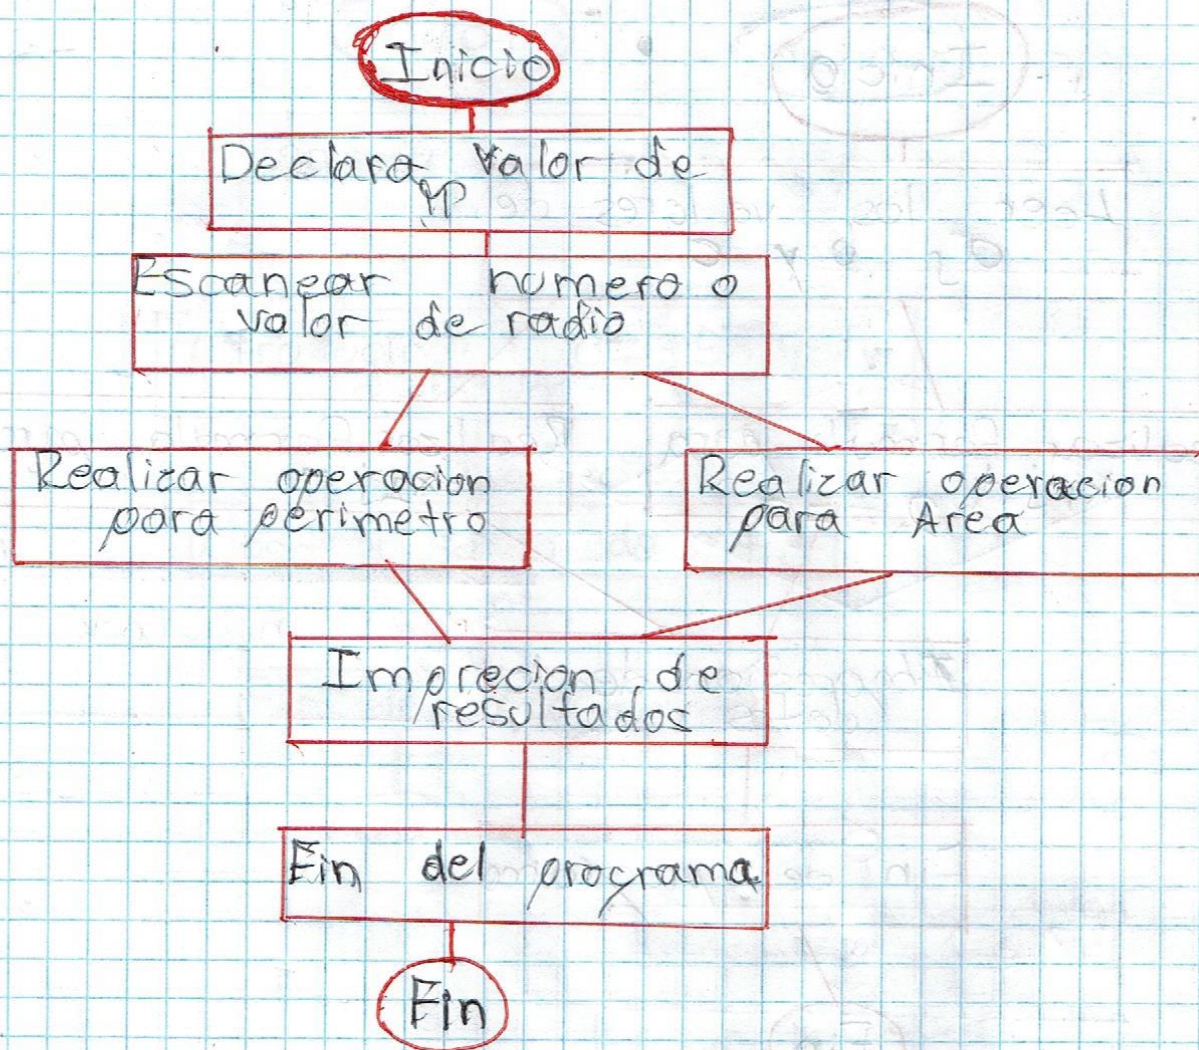 Inicio
Declara valor de
Escanear numero o
valor de radio
Realizar operacion
para perimetro
Realizar operacion
para Area
Imprecion de
resultados
Fin del programa
Fin